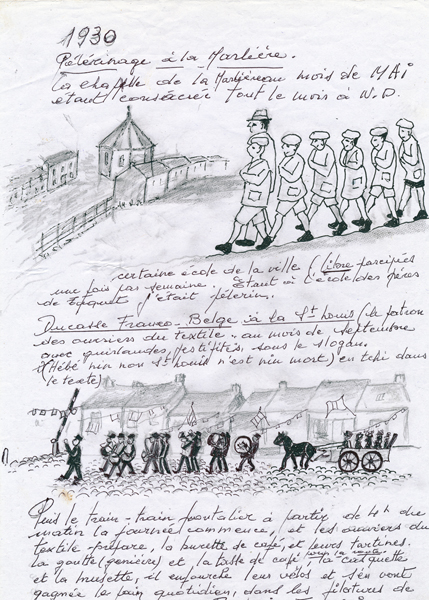 1930
Pélérinage à la Marlière.
La chapelle de la Marlière au mois de MAi
étant consacrée tout le mois à N.D.
certaine école de la ville (libre
une fois par semaine. Étant à l'école des frères
de j'étais pélerin.
Ducasse Franco-Belge à la St Louis (le patron
des ouvriers du textile) au mois de septembre
avec guirlandes, festivités, sous le slogan
(Hébé nin non St Louis n'est nin mort) en tchi dans
le texte)
Puis le train-train frontalier à partir de 4h du
matin la journée commence, et les ouvriers du
textile prépare, la burette de café, et leurs tartines.
la goutte (genièvre) et la tasse de café, la casquette
et la musette, il enfourche leur vélos et s'en vont
gagnée le pain quotidien, dans les filatures de